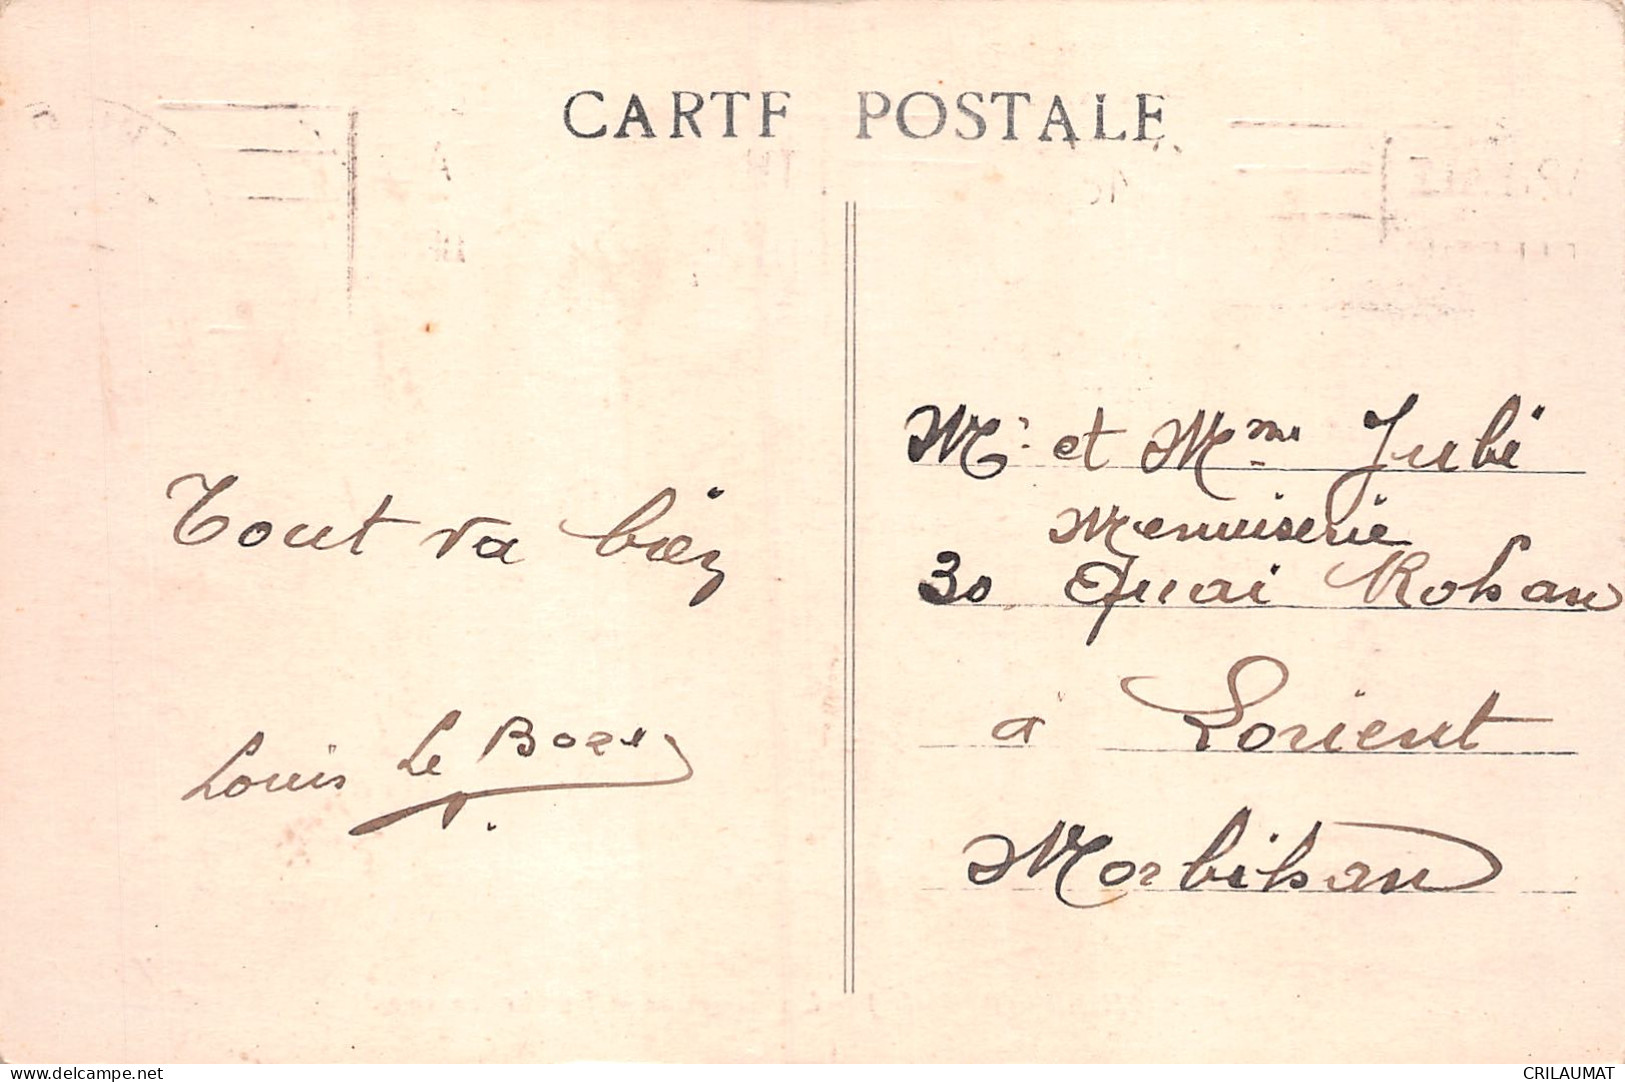 CARTE POSTALE
Tout va bien
Louis Le
Mr et Mme Jubé
Menuiserie
30 Quai Rohan
à Lorient
Morbihan
www.delcampe.net
CRILAUMAT